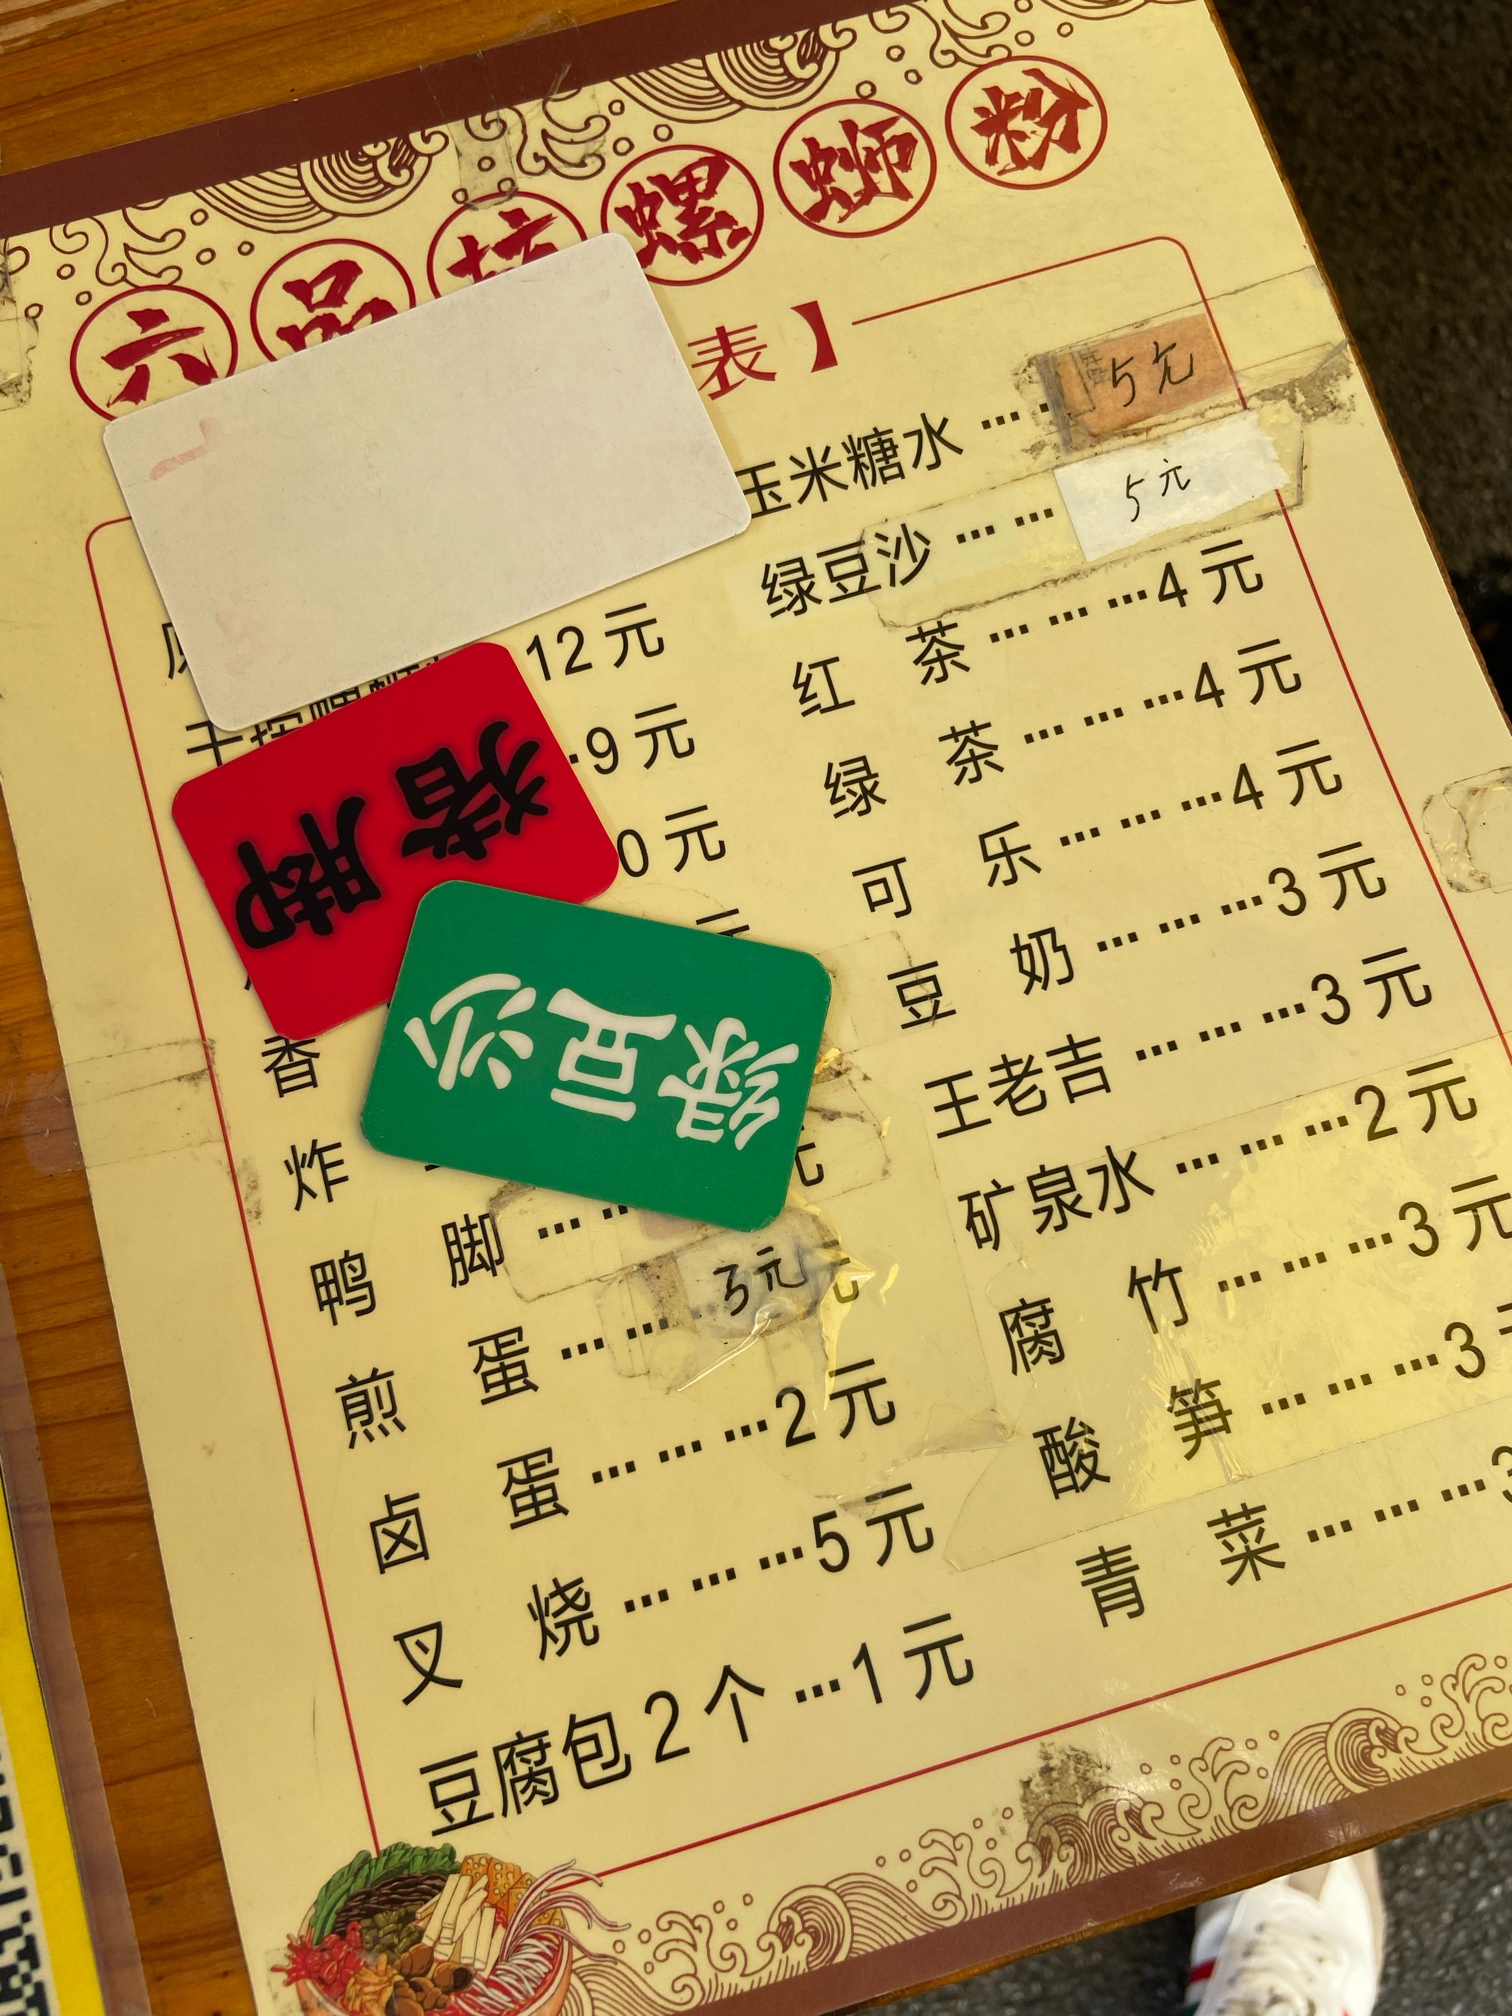 六品坊螺蛳粉
表】
12元
9元
0元
元
香
炸
元
鸭脚……
煎蛋……3元
卤蛋………2元
叉烧………5元
豆腐包2个…1元
玉米糖水…5元
绿豆沙……5元
红茶………4元
绿茶………4元
可乐………4元
豆奶………3元
王老吉………3元
矿泉水………2元
腐竹………3元
酸笋………3元
青菜………3
猪脚
绿豆沙